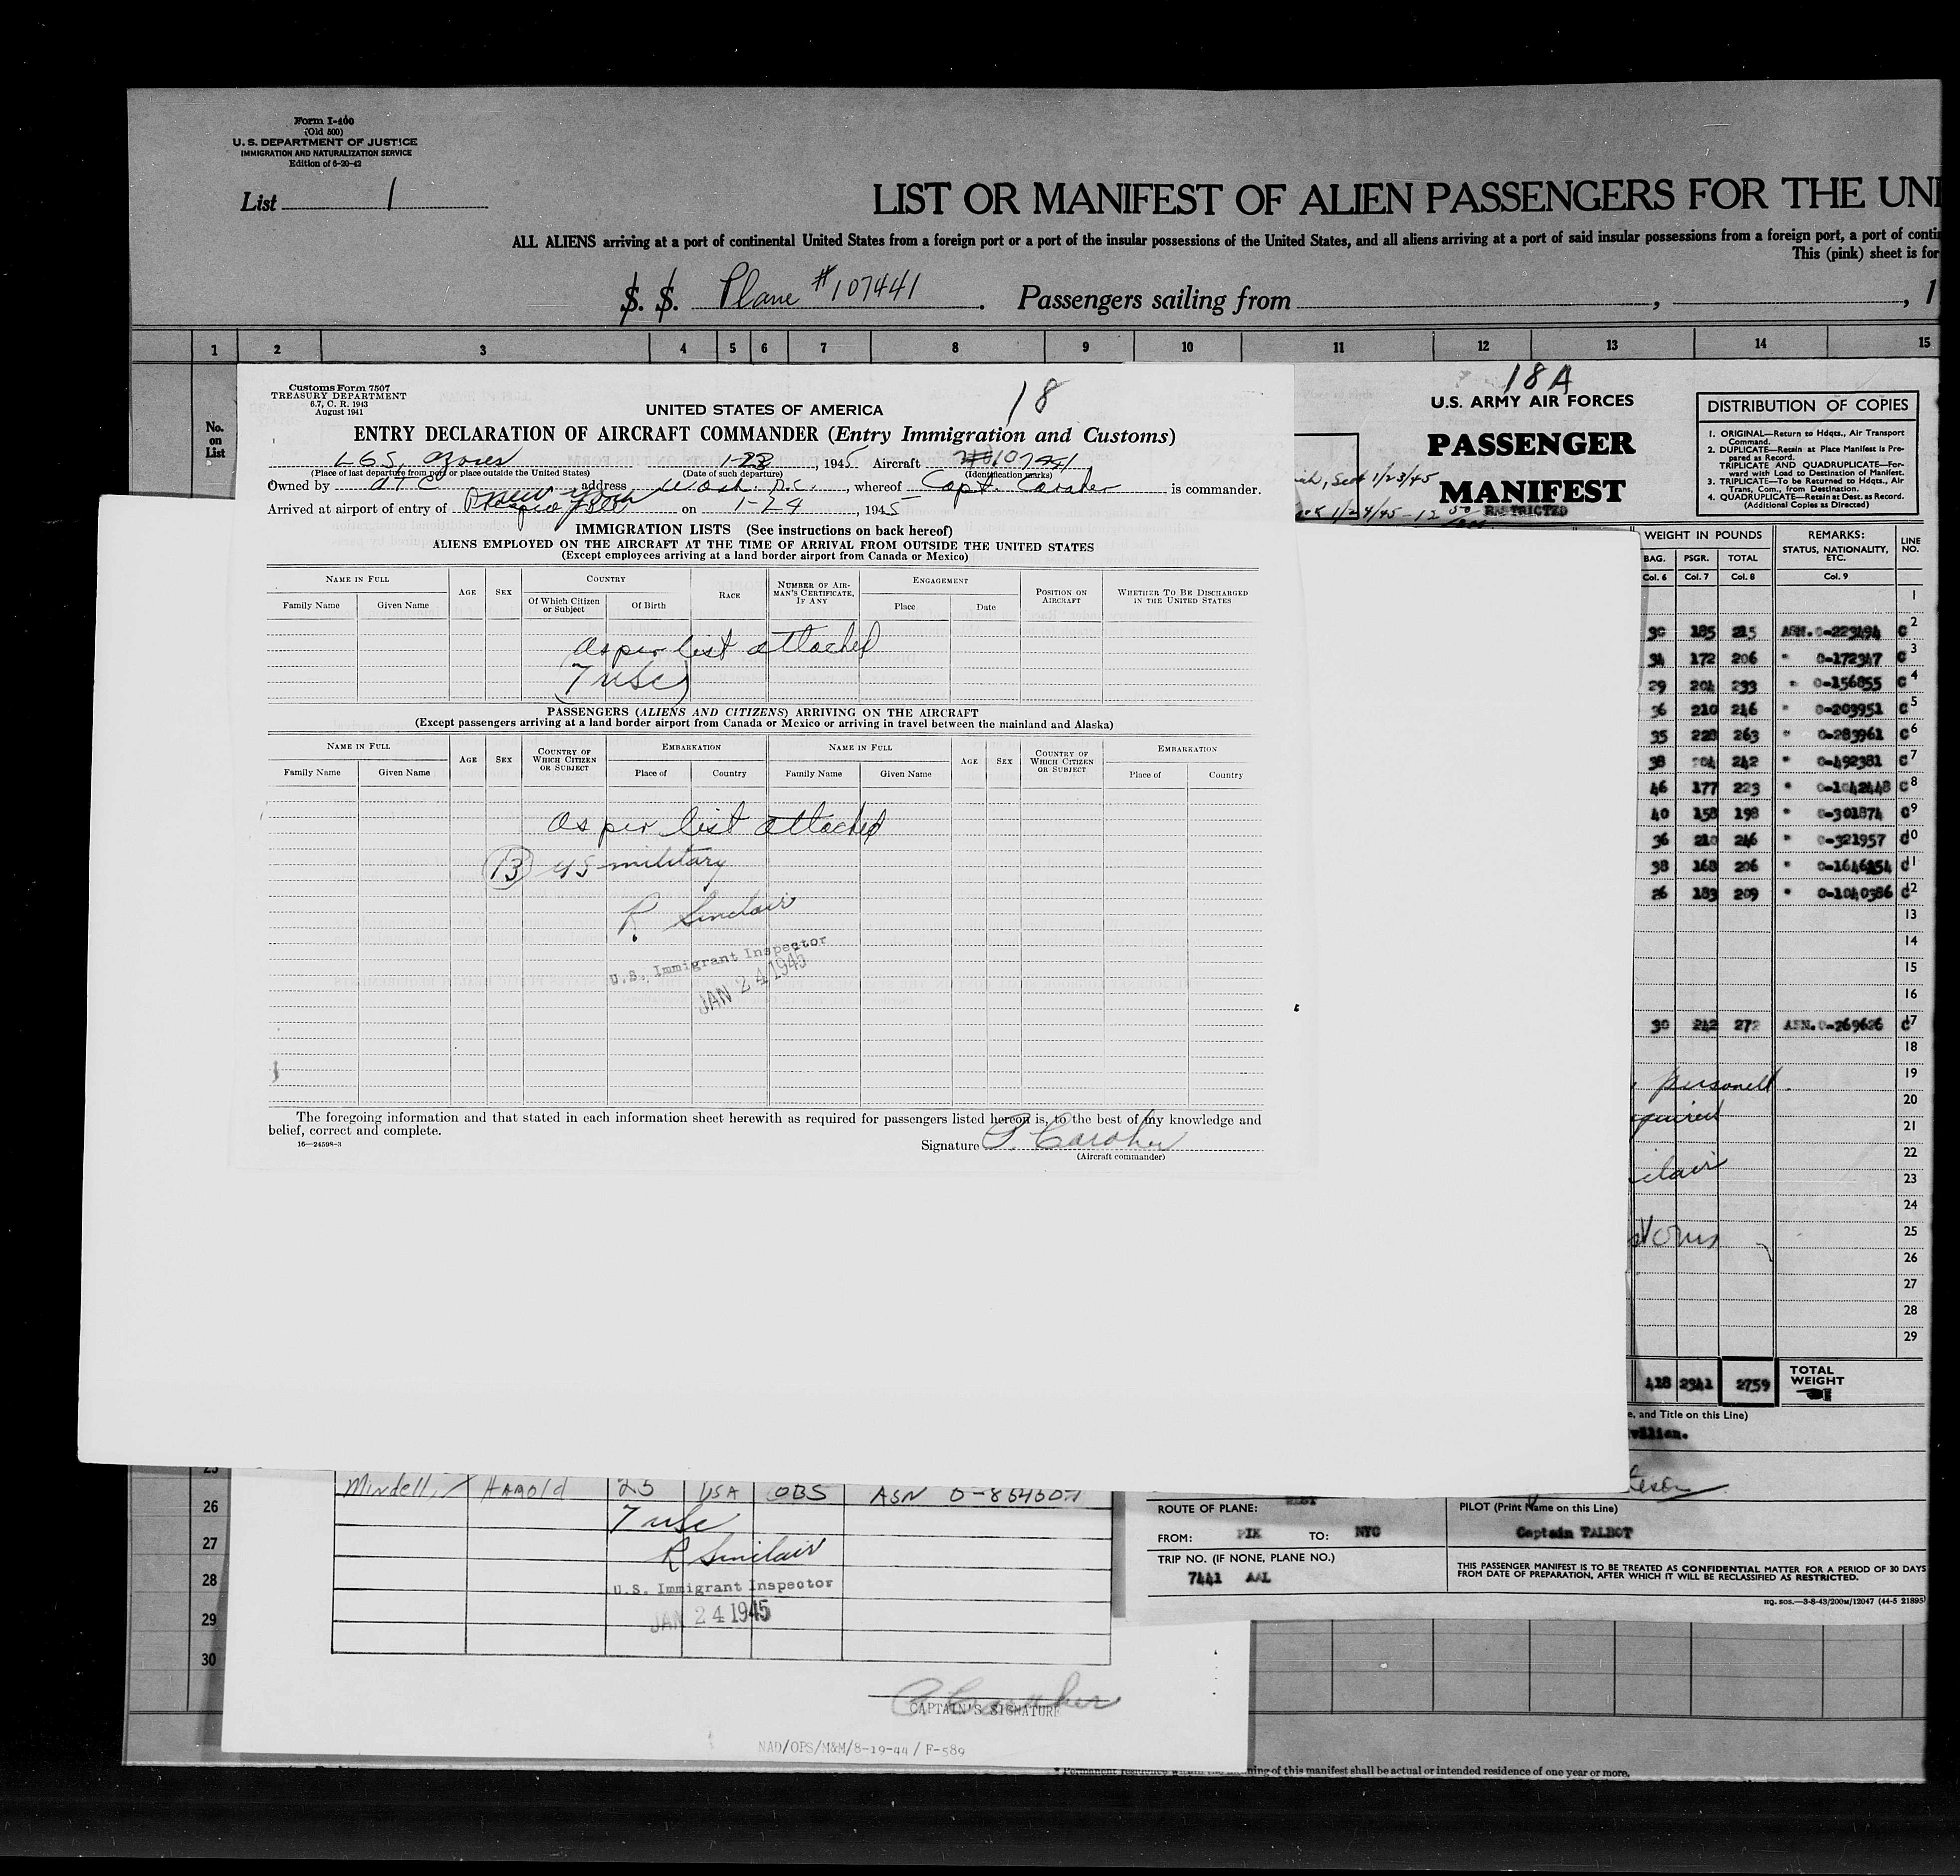 Form I-400
(Old 500)
U. S. DEPARTMENT OF JUSTICE
IMMIGRATION AND NATURALIZATION SERVICE
Edition of 6-20-42
List 1
LIST OR MANIFEST OF ALIEN PASSENGERS FOR THE UNI
ALL ALIENS arriving at a port of continental United States from a foreign port or a port of the insular possessions of the United States, and all aliens arriving at a port of said insular possessions from a foreign port, a port of conti
This (pink) sheet is for
S. S. Plane #107441. Passengers sailing from , , 1
1 2 3 4 5 6 7 8 9 10 11 12 13 14 15
No.
on
List
Customs Form 7507
TREASURY DEPARTMENT
6.7, C. R. 1943
August 1941
18
UNITED STATES OF AMERICA
ENTRY DECLARATION OF AIRCRAFT COMMANDER (Entry Immigration and Customs)
LGS, Azores 1-23, 1945 Aircraft #107441
(Place of last departure from port or place outside the United States) (Date of such departure) (Identification marks)
Owned by ATC address Wash. D.C., whereof Capt. Caraher is commander.
Arrived at airport of entry of New York on 1-24, 1945
IMMIGRATION LISTS (See instructions on back hereof)
ALIENS EMPLOYED ON THE AIRCRAFT AT THE TIME OF ARRIVAL FROM OUTSIDE THE UNITED STATES
(Except employees arriving at a land border airport from Canada or Mexico)
NAME IN FULL AGE SEX COUNTRY RACE NUMBER OF AIRMAN'S CERTIFICATE, IF ANY ENGAGEMENT POSITION ON AIRCRAFT WHETHER TO BE DISCHARGED IN THE UNITED STATES
Family Name Given Name Of Which Citizen or Subject Of Birth Place Date
as per list attached
(7 USC)
PASSENGERS (ALIENS AND CITIZENS) ARRIVING ON THE AIRCRAFT
(Except passengers arriving at a land border airport from Canada or Mexico or arriving in travel between the mainland and Alaska)
NAME IN FULL AGE SEX COUNTRY OF WHICH CITIZEN OR SUBJECT EMBARKATION NAME IN FULL AGE SEX COUNTRY OF WHICH CITIZEN OR SUBJECT EMBARKATION
Family Name Given Name Place of Country Family Name Given Name Place of Country
as per list attached
13 US military
R Sinclair
U.S. Immigrant Inspector
JAN 24 1945
The foregoing information and that stated in each information sheet herewith as required for passengers listed hereon is, to the best of my knowledge and
belief, correct and complete.
16—24598-3
Signature P. Caraher
(Aircraft commander)
18A
U.S. ARMY AIR FORCES
PASSENGER
MANIFEST
RESTRICTED
1/23/45
1/24/45-12 50
DISTRIBUTION OF COPIES
1. ORIGINAL—Return to Hdqts., Air Transport
Command.
2. DUPLICATE—Retain at Place Manifest is Pre-
pared as Record.
TRIPLICATE AND QUADRUPLICATE—For-
ward with Load to Destination of Manifest.
3. TRIPLICATE—To be Returned to Hdqts., Air
Trans. Com., from Destination.
4. QUADRUPLICATE—Retain at Dest. as Record.
(Additional Copies as Directed)
WEIGHT IN POUNDS REMARKS: STATUS, NATIONALITY, ETC. LINE NO.
BAG. PSGR. TOTAL
Col. 6 Col. 7 Col. 8 Col. 9
1
30 185 215 ASN. O-223494 C 2
34 172 206 " O-172347 C 3
29 204 233 " O-156855 C 4
36 210 246 " O-203951 C 5
35 228 263 " O-283961 C 6
38 204 242 " O-492381 C 7
46 177 223 " O-1042448 C 8
40 158 198 " O-301874 C 9
36 210 246 " O-321957 C 10
38 168 206 " O-1646254 C 11
26 183 209 " O-1040386 C 12
13
14
15
16
30 242 272 ASN. O-269626 C 17
18
19
personell.
20
21
22
23
24
25
26
27
28
29
418 2341 2759 TOTAL WEIGHT
e, and Title on this Line)
vilian.
ROUTE OF PLANE: WEST
PILOT (Print Name on this Line)
FROM: PIK TO: NYC
Captain TALBOT
TRIP NO. (IF NONE, PLANE NO.)
7441 AAL
THIS PASSENGER MANIFEST IS TO BE TREATED AS CONFIDENTIAL MATTER FOR A PERIOD OF 30 DAYS
FROM DATE OF PREPARATION, AFTER WHICH IT WILL BE RECLASSIFIED AS RESTRICTED.
HQ. SOS.—3-8-43/200M/12047 (44-5 21895)
25
Mindell, Harold 25 USA OBS ASN
26
7 USC
27
R Sinclair
28
U.S. Immigrant Inspector
29
JAN 24 1945
30
P Caraher
CAPTAIN'S SIGNATURE
NAD/OPS/M&M/8-19-44 / F-589
ning of this manifest shall be actual or intended residence of one year or more.